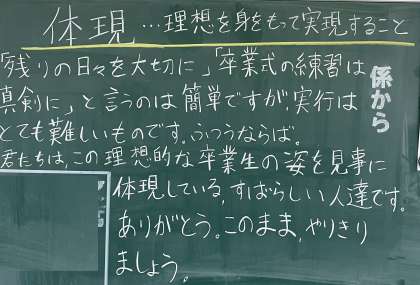 体現…理想を身をもって実現すること
「残りの日々を大切に」「卒業式の練習は
真剣に」と言うのは簡単ですが、実行は
とても難しいものです。ふつうならば。
君たちは、この理想的な卒業生の姿を見事に
体現している、すばらしい人達です。
ありがとう。このまま、やりきり
ましょう。
係から